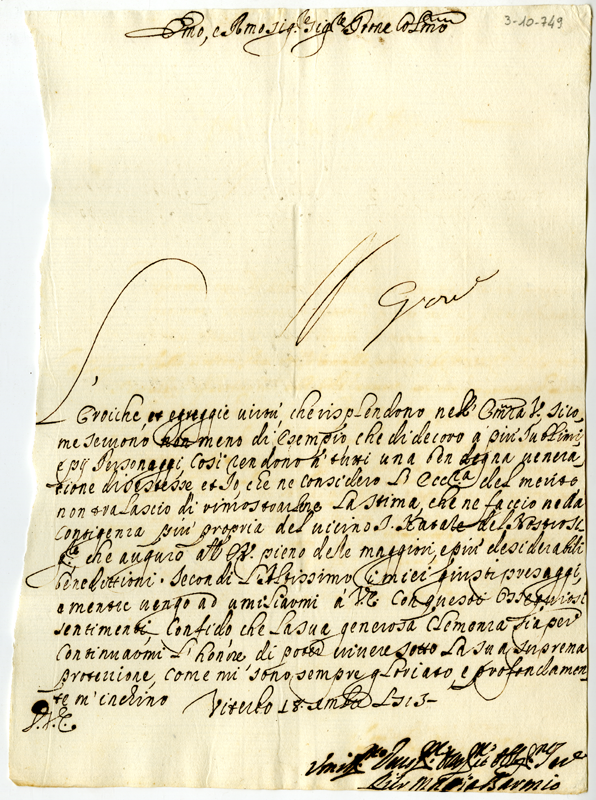 3-10-749
Emo, e Rmo Sig.re Sig.re Prone Colmo
L'eroiche, et egreggie uirtù, che risplendono nell' Emza V.a sico,
me seruono non meno di esempio che di decoro à più sublimi,
e pij Personaggi, così rendono à tutti una ben degna uenera,
tione di se stesse et Io che ne considero L' Ecc.za del merito
non tralascio di dimostrarle La stima, che ne faccio nella
contigenza più propria del uicino S. Natale del Nostro Si
che auguro all' E.V. pieno delle maggiori, e più desiderabili
beneditioni. Secondi L'Altissimo i miei giusti presaggi,
e mentre uengo ad umiliarmi à V.E. con questi ossequiosi
sentimenti, confido che La sua generosa Clemenza sia per
continuarmi L'honore di poter uiuere sotto La sua suprema
protezione, come mi sono sempre gloriato, e profondamen
te m'inchino Viterbo 18
D.V.E.
Maria